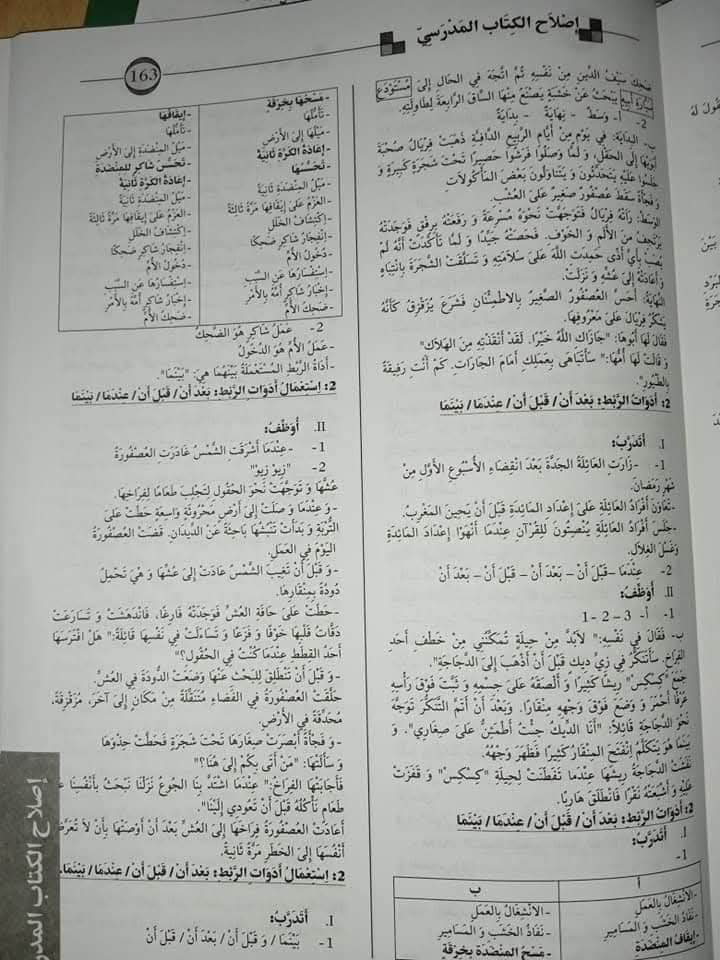 إصْلَاح الكِتَاب المَدْرَسِيّ
163
ضَحِكَ سَيْفُ الدِّينِ مِنْ نَفْسِهِ ثُمَّ اتَّجَهَ فِي الحَالِ إِلَى مُسْتَوْدَعِ
سَيَّارَةِ أَبِيهِ يَبْحَثُ عَنْ خَشَبَةٍ يَصْنَعُ مِنْهَا السَّاقَ الرَّابِعَةَ لِطَاوِلَتِهِ.
2- أ- وَسَطٌ - نِهَايَةٌ - بِدَايَةٌ
ب- البِدَايَة: فِي يَوْمٍ مِنْ أَيَّامِ الرَّبِيعِ الدَّافِئَةِ ذَهَبَتْ فِرْيَالُ صُحْبَةَ
أَبَوَيْهَا إِلَى الحَقْلِ، وَ لَمَّا وَصَلُوا فَرَشُوا حَصِيرًا تَحْتَ شَجَرَةٍ كَبِيرَةٍ وَ
جَلَسُوا عَلَيْهِ يَتَحَدَّثُونَ وَ يَتَنَاوَلُونَ بَعْضَ المَأْكُولَاتِ.
وَ فَجْأَةً سَقَطَ عُصْفُورٌ صَغِيرٌ عَلَى العُشْبِ.
الوَسَط: رَأَتْهُ فِرْيَالُ فَتَوَجَّهَتْ نَحْوَهُ مُسْرِعَةً وَ رَفَعَتْهُ بِرِفْقٍ فَوَجَدَتْهُ
يَرْتَجِفُ مِنَ الأَلَمِ وَ الخَوْفِ. فَحَصَتْهُ جَيِّدًا وَ لَمَّا تَأَكَّدَتْ أَنَّهُ لَمْ
يُصَبْ بِأَيِّ أَذًى حَمِدَتْ اللَّهَ عَلَى سَلَامَتِهِ وَ تَسَلَّقَتْ الشَّجَرَةَ بِانْتِبَاهٍ
وَ أَعَادَتْهُ إِلَى عُشِّهِ وَ نَزَلَتْ.
النِّهَايَة: أَحَسَّ العُصْفُورُ الصَّغِيرُ بِالاطْمِئْنَانِ فَشَرَعَ يُزَقْزِقُ كَأَنَّهُ
يَشْكُرُ فِرْيَالَ عَلَى مَعْرُوفِهَا.
فَقَالَ لَهَا أَبُوهَا: "جَازَاكِ اللَّهُ خَيْرًا. لَقَدْ أَنْقَذْتِهِ مِنَ الهَلَاكِ"
وَ قَالَتْ لَهَا أُمُّهَا: "سَأَتَبَاهَى بِعَمَلِكِ أَمَامَ الجَارَاتِ. كَمْ أَنْتِ رَفِيقَةٌ
بِالطُّيُورِ".
2: أَدَوَاتُ الرَّبْطِ: بَعْدَ أَنْ/ قَبْلَ أَنْ/ عِنْدَمَا/ بَيْنَمَا
I. أَتَدَرَّبُ:
1- -زَارَتِ العَائِلَةُ الجَدَّةَ بَعْدَ انْقِضَاءِ الأُسْبُوعِ الأَوَّلِ مِنْ
شَهْرِ رَمَضَانَ.
-تَعَاوَنَ أَفْرَادُ العَائِلَةِ عَلَى إِعْدَادِ المَائِدَةِ قَبْلَ أَنْ يَحِينَ المَغْرِبُ.
-جَلَسَ أَفْرَادُ العَائِلَةِ يُنْصِتُونَ لِلْقُرْآنِ عِنْدَمَا أَنْهَوْا إِعْدَادَ المَائِدَةِ
وَغَسْلَ الغِلَالِ.
2- عِنْدَمَا -قَبْلَ أَنْ- بَعْدَ أَنْ- قَبْلَ أَنْ- بَعْدَ أَنْ
II. أُوَظِّفُ:
1- أ- 3-2-1
ب- فَقَالَ فِي نَفْسِهِ: "لَابُدَّ مِنْ حِيلَةٍ تُمَكِّنُنِي مِنْ خَطْفِ أَحَدِ
الفِرَاخِ. سَأَتَنَكَّرُ فِي زِيِّ دِيكٍ قَبْلَ أَنْ أَذْهَبَ إِلَى الدَّجَاجَةِ".
جَمَعَ "كِسْكِسْ" رِيشًا كَثِيرًا وَ أَلْصَقَهُ عَلَى جِسْمِهِ وَ ثَبَّتَ فَوْقَ رَأْسِهِ
عُرْفًا أَحْمَرَ وَ وَضَعَ فَوْقَ وَجْهِهِ مِنْقَارًا. وَبَعْدَ أَنْ أَتَمَّ التَّنَكُّرَ تَوَجَّهَ
نَحْوَ الدَّجَاجَةِ قَائِلًا: "أَنَا الدِّيكُ جِئْتُ أَطْمَئِنُّ عَلَى صِغَارِي". وَ
بَيْنَمَا هُوَ يَتَكَلَّمُ إِنْفَتَحَ المِنْقَارُ كَثِيرًا فَظَهَرَ وَجْهُهُ.
نَفَشَتْ الدَّجَاجَةُ رِيشَهَا عِنْدَمَا تَفَطَّنَتْ لِحِيلَةِ "كِسْكِسْ" وَ قَفَزَتْ
عَلَيْهِ وَ أَشْبَعَتْهُ نَقْرًا فَانْطَلَقَ هَارِبًا.
2: أَدَوَاتُ الرَّبْطِ: بَعْدَ أَنْ/ قَبْلَ أَنْ/ عِنْدَمَا/ بَيْنَمَا
I. أَتَدَرَّبُ:
1-
أ
ب
-الانْشِغَالُ بِالعَمَلِ
-نَفَاذُ الخَشَبِ وَ المَسَامِيرِ
-إِيقَافُ المِنْضَدَةِ
-الانْشِغَالُ بِالعَمَلِ
-نَفَاذُ الخَشَبِ وَ المَسَامِيرِ
-مَسْحُ المِنْضَدَةِ بِخِرْقَةٍ
-مَسْحُهَا بِخِرْقَةٍ
-تَأَمُّلُهَا
-مَيْلُهَا إِلَى الأَرْضِ
-إِعَادَةُ الكَرَّةِ ثَانِيَةً
-تَحَسُّسُهَا
-مَيْلُ المِنْضَدَةِ ثَانِيَةً
-العَزْمُ عَلَى إِيقَافِهَا مَرَّةً ثَالِثَةً
-إِكْتِشَافُ الخَلَلِ
-إِنْفِجَارُ شَاكِرٍ ضَحِكًا
-دُخُولُ الأُمِّ
-إِسْتِفْسَارُهَا عَنِ السَّبَبِ
-إِخْبَارُ شَاكِرٍ أُمَّهُ بِالأَمْرِ
-ضَحِكُ الأُمِّ
-إِيقَافُهَا
-تَأَمُّلُهَا
-مَيْلُ المِنْضَدَةِ إِلَى الأَرْضِ
-تَحَسُّسُ شَاكِرٍ لِلْمِنْضَدَةِ
-إِعَادَةُ الكَرَّةِ ثَانِيَةً
-مَيْلُ المِنْضَدَةِ ثَانِيَةً
-العَزْمُ عَلَى إِيقَافِهَا مَرَّةً ثَالِثَةً
-إِكْتِشَافُ الخَلَلِ
-إِنْفِجَارُ شَاكِرٍ ضَحِكًا
-دُخُولُ الأُمِّ
-إِسْتِفْسَارُهَا عَنِ السَّبَبِ
-إِخْبَارُ شَاكِرٍ أُمَّهُ بِالأَمْرِ
-ضَحِكُ الأُمِّ
2- -عَمَلُ شَاكِرٍ هُوَ الضَّحِكُ
-عَمَلُ الأُمِّ هُوَ الدُّخُولُ
-أَدَاةُ الرَّبْطِ المُسْتَعْمَلَةُ بَيْنَهُمَا هِيَ: "بَيْنَمَا".
2: إِسْتِعْمَالُ أَدَوَاتِ الرَّبْطِ: بَعْدَ أَنْ/ قَبْلَ أَنْ/ عِنْدَمَا/ بَيْنَمَا
II. أُوَظِّفُ:
1- -عِنْدَمَا أَشْرَقَتِ الشَّمْسُ غَادَرَتِ العُصْفُورَةُ
2- "زِيوْ زِيوْ"
عُشَّهَا وَ تَوَجَّهَتْ نَحْوَ الحُقُولِ لِتَجْلِبَ طَعَامًا لِفِرَاخِهَا.
-وَ عِنْدَمَا وَصَلَتْ إِلَى أَرْضٍ مَحْرُوثَةٍ وَاسِعَةٍ حَطَّتْ عَلَى
التُّرْبَةِ وَ بَدَأَتْ تَنْبُشُهَا بَاحِثَةً عَنِ الدِّيدَانِ. قَضَتْ العُصْفُورَةُ
اليَوْمَ فِي العَمَلِ.
-وَ قَبْلَ أَنْ تَغِيبَ الشَّمْسُ عَادَتْ إِلَى عُشِّهَا وَ هِيَ تَحْمِلُ
دُودَةً بِمِنْقَارِهَا.
-حَطَّتْ عَلَى حَافَةِ العُشِّ فَوَجَدَتْهُ فَارِغًا، فَانْدَهَشَتْ وَ تَسَارَعَتْ
دَقَّاتُ قَلْبِهَا خَوْفًا وَ فَزَعًا وَ تَسَاءَلَتْ فِي نَفْسِهَا قَائِلَةً: "هَلْ افْتَرَسَهَا
أَحَدُ القِطَطِ عِنْدَمَا كُنْتُ فِي الحُقُولِ؟"
-وَ قَبْلَ أَنْ تَنْطَلِقَ لِلْبَحْثِ عَنْهَا وَضَعَتْ الدُّودَةَ فِي العُشِّ.
حَلَّقَتْ العُصْفُورَةُ فِي الفَضَاءِ مُتَنَقِّلَةً مِنْ مَكَانٍ إِلَى آخَرَ، مُزَقْزِقَةً،
مُحَدِّقَةً فِي الأَرْضِ.
-وَ فَجْأَةً أَبْصَرَتْ صِغَارَهَا تَحْتَ شَجَرَةٍ فَحَطَّتْ حِذْوَهَا
وَ سَأَلَتْهَا: "مَنْ أَتَى بِكُمْ إِلَى هُنَا؟"
فَأَجَابَتْهَا الفِرَاخُ: "عِنْدَمَا اشْتَدَّ بِنَا الجُوعُ نَزَلْنَا نَبْحَثُ بِأَنْفُسِنَا
طَعَامٍ نَأْكُلُهُ قَبْلَ أَنْ تَعُودِي إِلَيْنَا".
أَعَادَتْ العُصْفُورَةُ فِرَاخَهَا إِلَى العُشِّ بَعْدَ أَنْ أَوْصَتْهَا بِأَنْ لَا تُعَرِّضَ
أَنْفُسَهَا إِلَى الخَطَرِ مَرَّةً ثَانِيَةً.
2: إِسْتِعْمَالُ أَدَوَاتِ الرَّبْطِ: بَعْدَ أَنْ/ قَبْلَ أَنْ/ عِنْدَمَا/ بَيْنَمَا.
I. أَتَدَرَّبُ:
1- بَيْنَمَا/ وَ قَبْلَ أَنْ/ بَعْدَ أَنْ/ قَبْلَ أَنْ
إصلاح الكتاب المدر